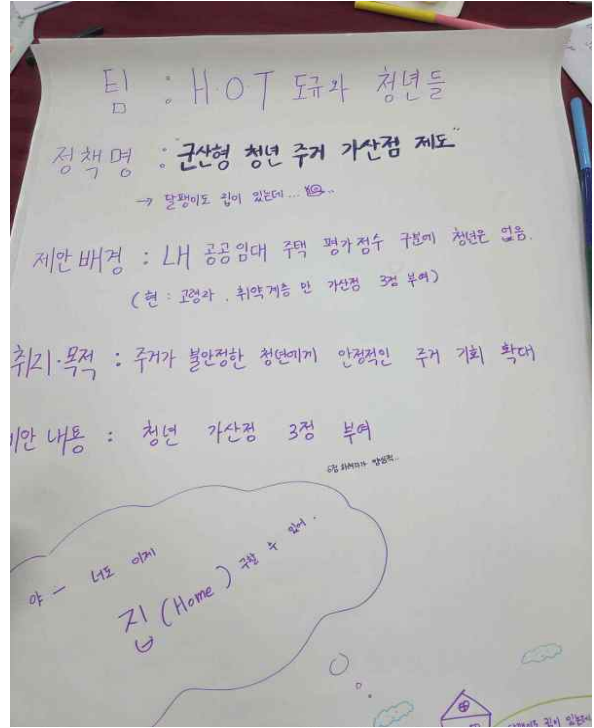 팀 : H.O.T 도규와 청년들
정책명 : "군산형 청년 주거 가산점 제도"
→ 달팽이도 집이 있는데...
제안배경 : LH 공공임대 주택 평가점수 구분에 청년은 없음.
(현 : 고령자, 취약계층 만 가산점 3점 부여)
취지·목적 : 주거가 불안정한 청년에게 안정적인 주거 기회 확대
제안 내용 : 청년 가산점 3점 부여
야 - 너도 이제
집 (Home) 구할 수 있어.
달팽이도 집이 있는데